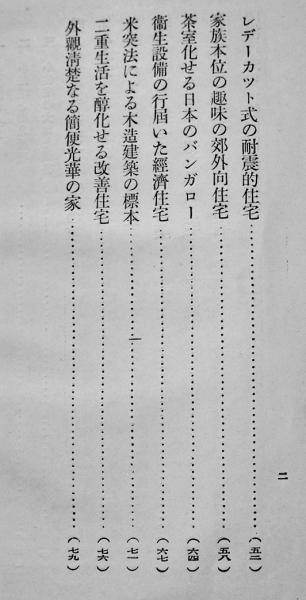 レデーカツト式の耐震的住宅……(五二)
家族本位の趣味の郊外向住宅……(五八)
茶室化せる日本のバンガロー……(六四)
衞生設備の行屆いた經濟住宅……(六七)
米突法による木造建築の標本……(七一)
二重生活を醇化せる改善住宅……(七六)
外觀淸楚なる簡便光華の家……(七九)
二